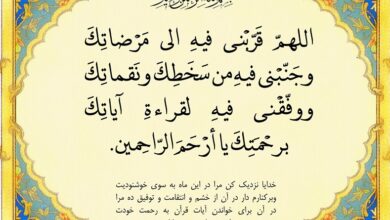 اللهمّ قَرِّبْنى فيهِ الى مَرْضاتِكَ
وجَنّبْنى فيهِ من سَخَطِكَ ونَقماتِكَ
ووفّقْنى فيهِ لقراءةِ آياتِكَ
برحْمَتِكَ يا أرْحَمَ الرّاحِمين.
خدایا نزدیک کن مرا در این ماه به سوی خوشنودیت
وبرکنارم دار در آن از خشم و انتقامت و توفیق ده مرا
در آن برای خواندن آیات قرآن به رحمت خودت